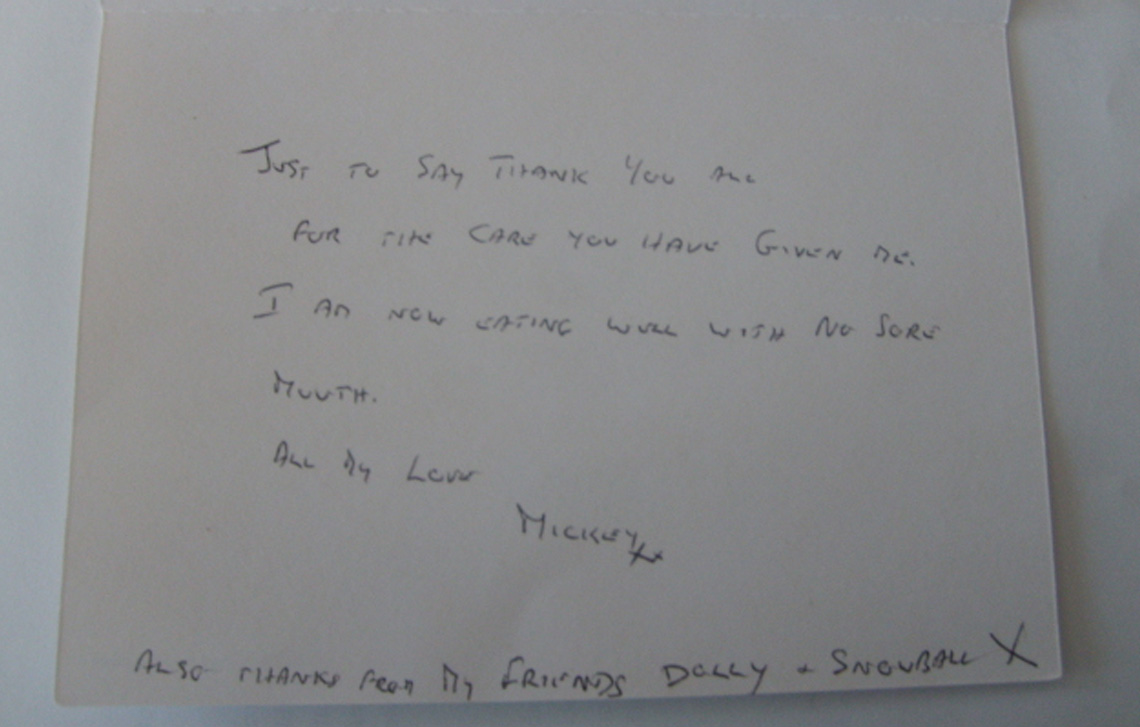 JUST TO SAY THANK YOU ALL
FOR THE CARE YOU HAVE GIVEN ME.
I AM NOW EATING WELL WITH NO SORE
MOUTH.
ALL MY LOVE
MICKEY xx
ALSO THANKS FROM MY FRIENDS DOLLY + SNOWBALL X